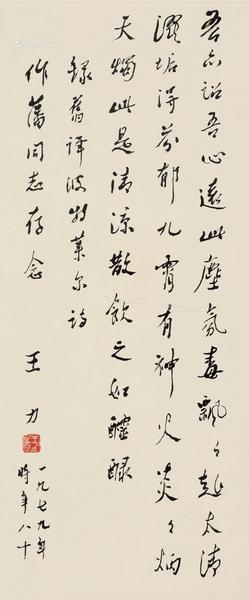 吾亦詔吾心遠此塵氛毒飄々赴太清
滌垢得芬郁九霄有神火炎々炳
天燭此是清涼散飲之如醽醁
錄舊譯波特萊尔詩
作藩同志存念
王力
一九七九年
時年八十